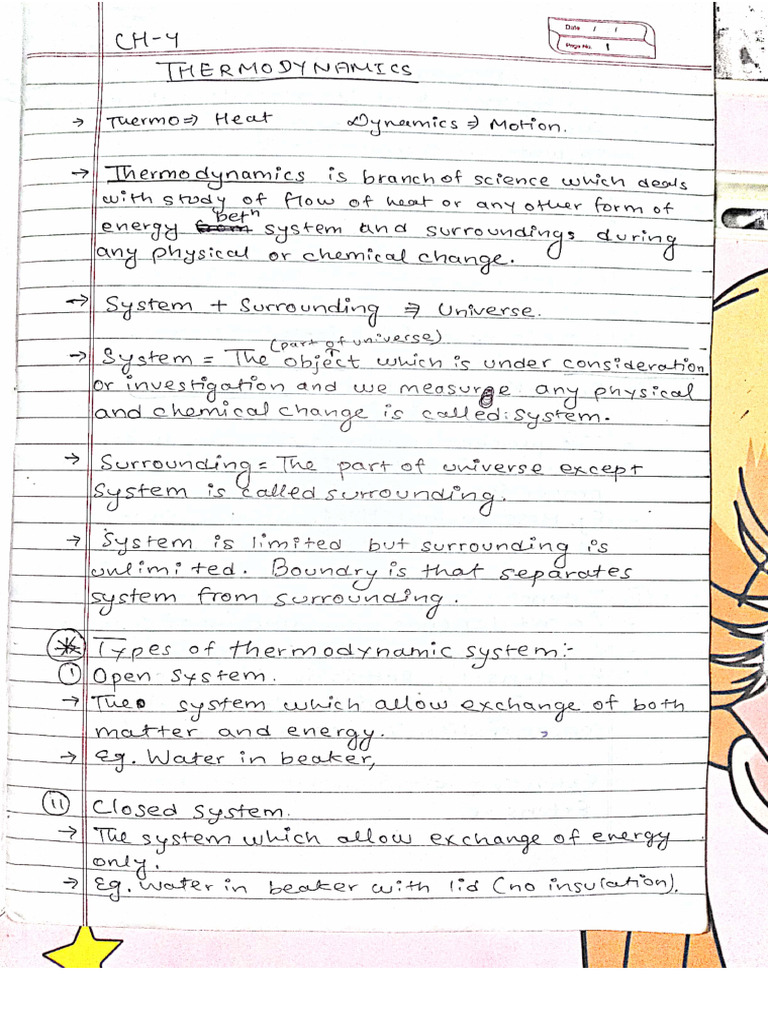 CH-4
Date / /
Page No. 1
THERMODYNAMICS
→ Thermo ⇒ Heat Dynamics ⇒ Motion.
→ Thermodynamics is branch of science which deals
with study of flow of heat or any other form of
betn
energy from system and surroundings during
any physical or chemical change.
→ System + Surrounding ⇒ Universe.
(part of universe)
→ System = The object which is under consideration
or investigation and we measure any physical
and chemical change is called system.
→ Surrounding = The part of universe except
system is called surrounding.
→ System is limited but surrounding is
unlimited. Boundry is that separates
system from surrounding.
* Types of thermodynamic system:-
(i) Open System.
→ The system which allow exchange of both
matter and energy.
→ Eg. Water in beaker,
(ii) Closed system.
→ The system which allow exchange of energy
only.
→ Eg. Water in beaker with lid (no insulation).